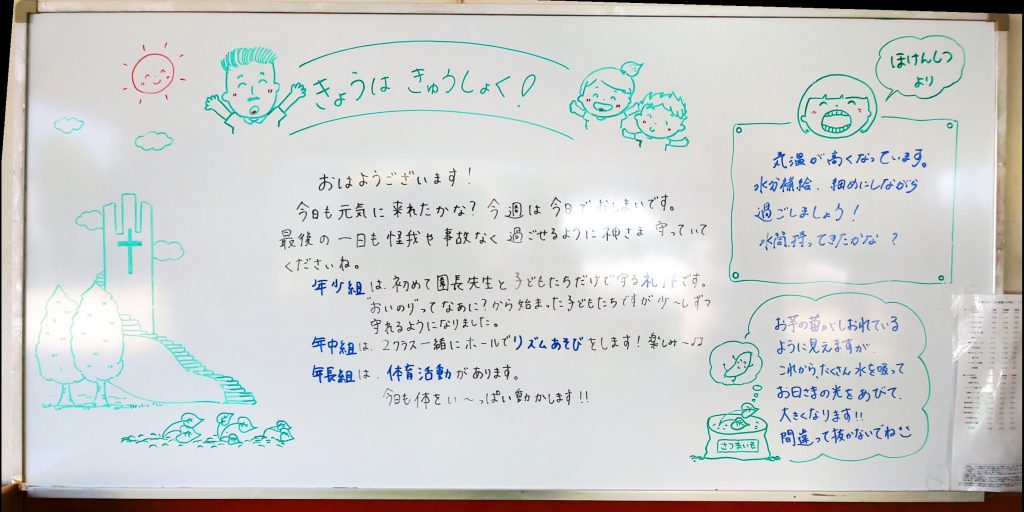 きょうは きゅうしょく!
ほけんしつ
より
おはようございます!
今日も元気に来れたかな? 今週は今日でおしまいです。
最後の一日も怪我や事故なく過ごせるように神さま守っていて
くださいね。
年少組は、初めて園長先生と子どもたちだけで守る礼拝です。
"おいのり"ってなあに?から始まった子どもたちですが少〜しずつ
守れるようになりました。
年中組は、2クラス一緒にホールでリズムあそびをします!楽しみ〜♫
年長組は、体育活動があります。
今日も体をい〜っぱい動かします!!
気温が高くなっています。
水分補給、細めにしながら
過ごしましょう!
水筒持ってきたかな?
お芋の苗がしおれている
ように見えますが、
これから、たくさん水を吸って
お日さまの光をあびて、
大きくなります!!
間違って抜かないでね
さつまいも